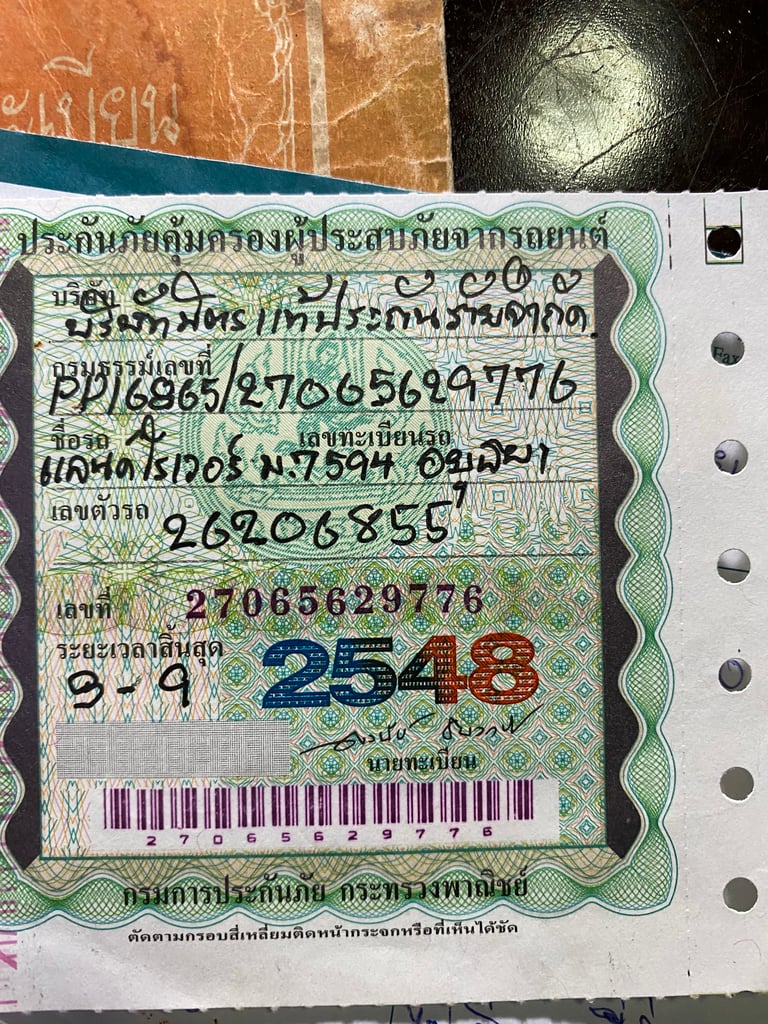 ะเบียน
ประกันภัยคุ้มครองผู้ประสบภัยจากรถยนต์
บริษัท บริษัทมิตรแท้ประกันภัยจำกัด
กรมธรรม์เลขที่
PP16865/27065629776
ชื่อรถ เลขทะเบียนรถ
แลนด์โรเวอร์ ม.7594 อยุธยา
เลขตัวรถ 26206855
เลขที่ 27065629776
ระยะเวลาสิ้นสุด
9-9 2548
นายทะเบียน
27065629776
กรมการประกันภัย กระทรวงพาณิชย์
ตัดตามกรอบสี่เหลี่ยมติดหน้ากระจกหรือที่เห็นได้ชัด
Fax